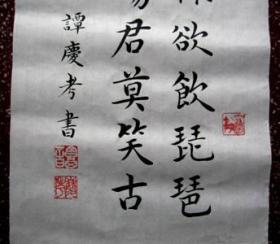 欲飲琵琶
君莫笑古
譚慶考書